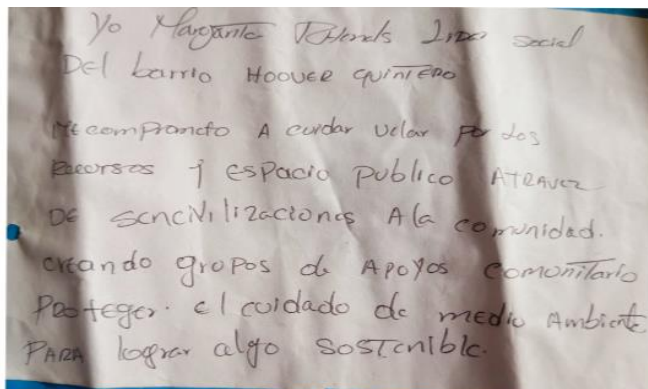 Yo Margarita social
DEL barrio HOOVER QUINTERO
ME comprometo A cuidar velar por Los
Recursos y espacio publico ATRAVEZ
DE sencivilizaciones A la comunidad.
creando gropos de Apoyos comonitario
Proteger. el cuidado de medio Ambiente
PARA lograr algo sostenible.